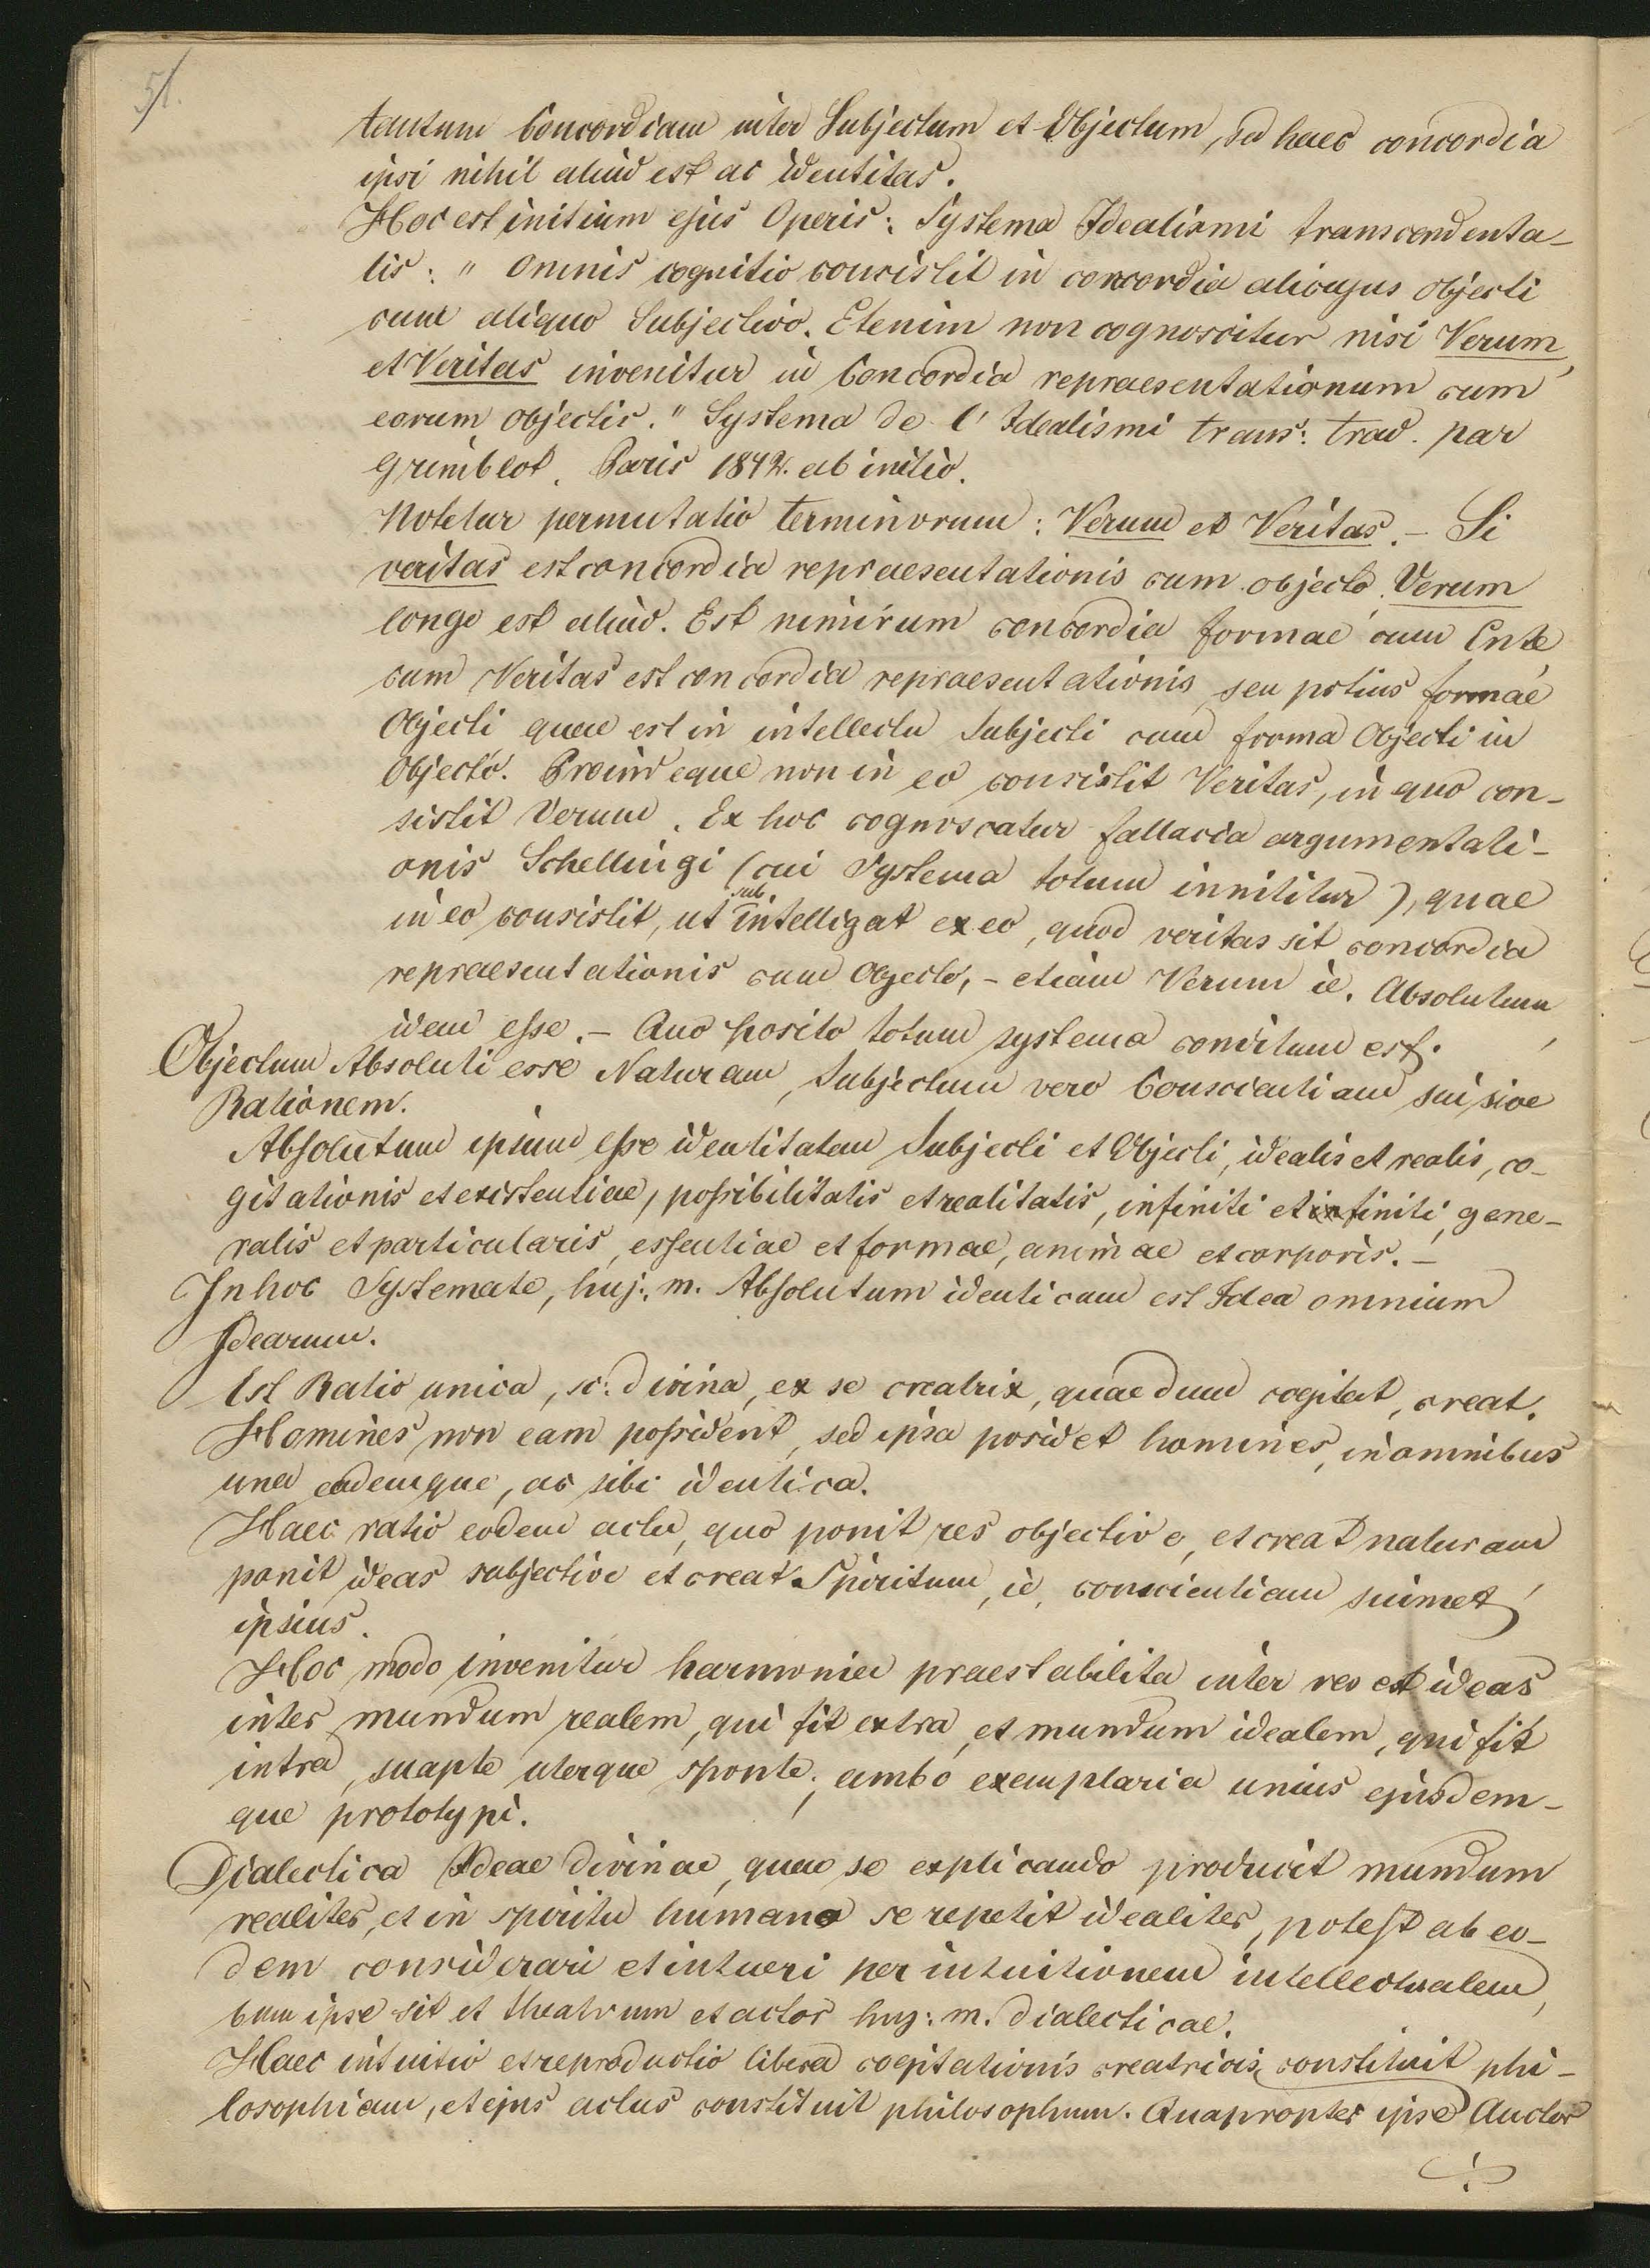 51.
tantum Concordiam inter Subjectum et Objectum, sed haec concordia
ipsi nihil aliud est ac identitas.
Hoc est initium ejus Operis: Systema Idealismi transcendenta-
lis: " Omnis cognitio consistit in concordia alicujus objecti
cum aliquo Subjectivo. Etenim non cognoscitur nisi Verum,
et Veritas invenitur in Concordia repraesentationum cum
eorum objectis." Systema de l' Idealismi trans: trad. par
Grimblot. Paris 1842. ab initio.
Notetur permutatio terminorum: Verum et Veritas. - Si
veritas est concordia repraesentationis cum objecto, Verum
longe est aliud. Est nimirum concordia formae cum Ente,
cum Veritas est concordia repraesentationis, seu potius formae
Objecti quae est in intellectu Subjecti cum forma Objecti in
Objecto. Proindeque non in eo consistit Veritas, in quo con-
sistit Verum. Ex hoc cognoscatur fallacia argumentati-
onis Schellingi (cui Systema totum innititur), quae
in eo consistit, ut subintelligat ex eo, quod veritas sit concordia
repraesentationis cum Objecto, - etiam Verum ie. Absolutum,
idem esse. - Quo posito totum systema conditum est.
Objectum Absoluti esse Naturam, Subjectum vero Conscientiam sui sive
Rationem.
Absolutum ipsum esse identitatem Subjecti et Objecti, idealis et realis, co-
gitationis et existentiae, possibilitatis et realitatis, infiniti et infiniti, gene-
ralis et particularis, essentiae et formae, animae et corporis. -
In hoc Systemate, huj. m. Absolutum identicum est Idea omnium
Idearum.
Est Ratio unica, sc: divina, ex se creatrix, quae dum cogitat, creat.
Homines non eam possident, sed ipsa posidet homines, in omnibus
una eademque, ac sibi identica.
Haec ratio eodem actu, quo ponit res objective, et creat naturam,
ponit ideas subjective et creat Spiritum, ie, conscientiam suimet
ipsius.
Hoc modo invenitur harmonia praestabilita inter res et ideas
inter mundum realem, qui fit extra, et mundum idealem, qui fit
intra, suapte uterque sponte; ambo exemplaria unius ejusdem-
que prototypi.
Dialectica Ideae divinae, quae se explicando producit mundum
realiter, et in spiritu humano se repetit idealiter, potest ab eo-
dem considerari et intueri per intuitionem intellectualem,
cum ipse sit et theatrum et actor huj: m. dialecticae.
Haec intuitio et reproductio libera cogitationis creatricis, constituit phi-
losophiam, et ejus actus constituit philosophum. Quapropter ipse Auctor